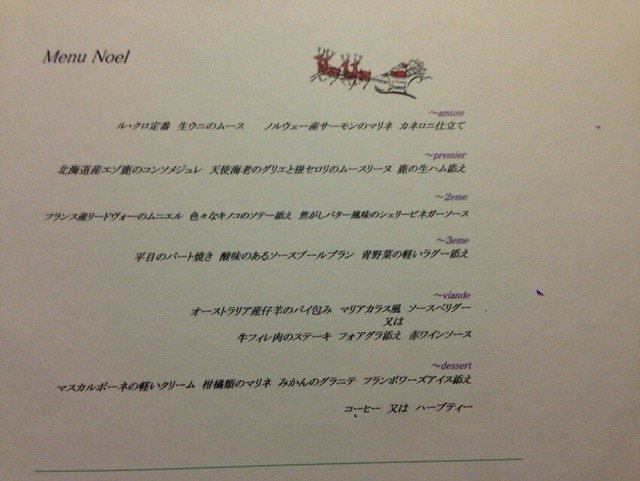 Menu Noel
~amuse
ル・クロ定番 生ウニのムース ノルウェー産サーモンのマリネ カネロニ仕立て
~premier
北海道産エゾ鹿のコンソメジュレ 天使海老のグリエと根セロリのムースリーヌ 鹿の生ハム添え
~2eme
フランス産リードヴォーのムニエル 色々なキノコのソテー添え 焦がしバター風味のシェリービネガーソース
~3eme
平目のパート焼き 酸味のあるソースブールブラン 青野菜の軽いラグー添え
~viande
オーストラリア産仔羊のパイ包み マリアカラス風 ソースペリグー
又は
牛フィレ肉のステーキ フォアグラ添え 赤ワインソース
~dessert
マスカルポーネの軽いクリーム 柑橘類のマリネ みかんのグラニテ フランボワーズアイス添え
コーヒー 又は ハーブティー